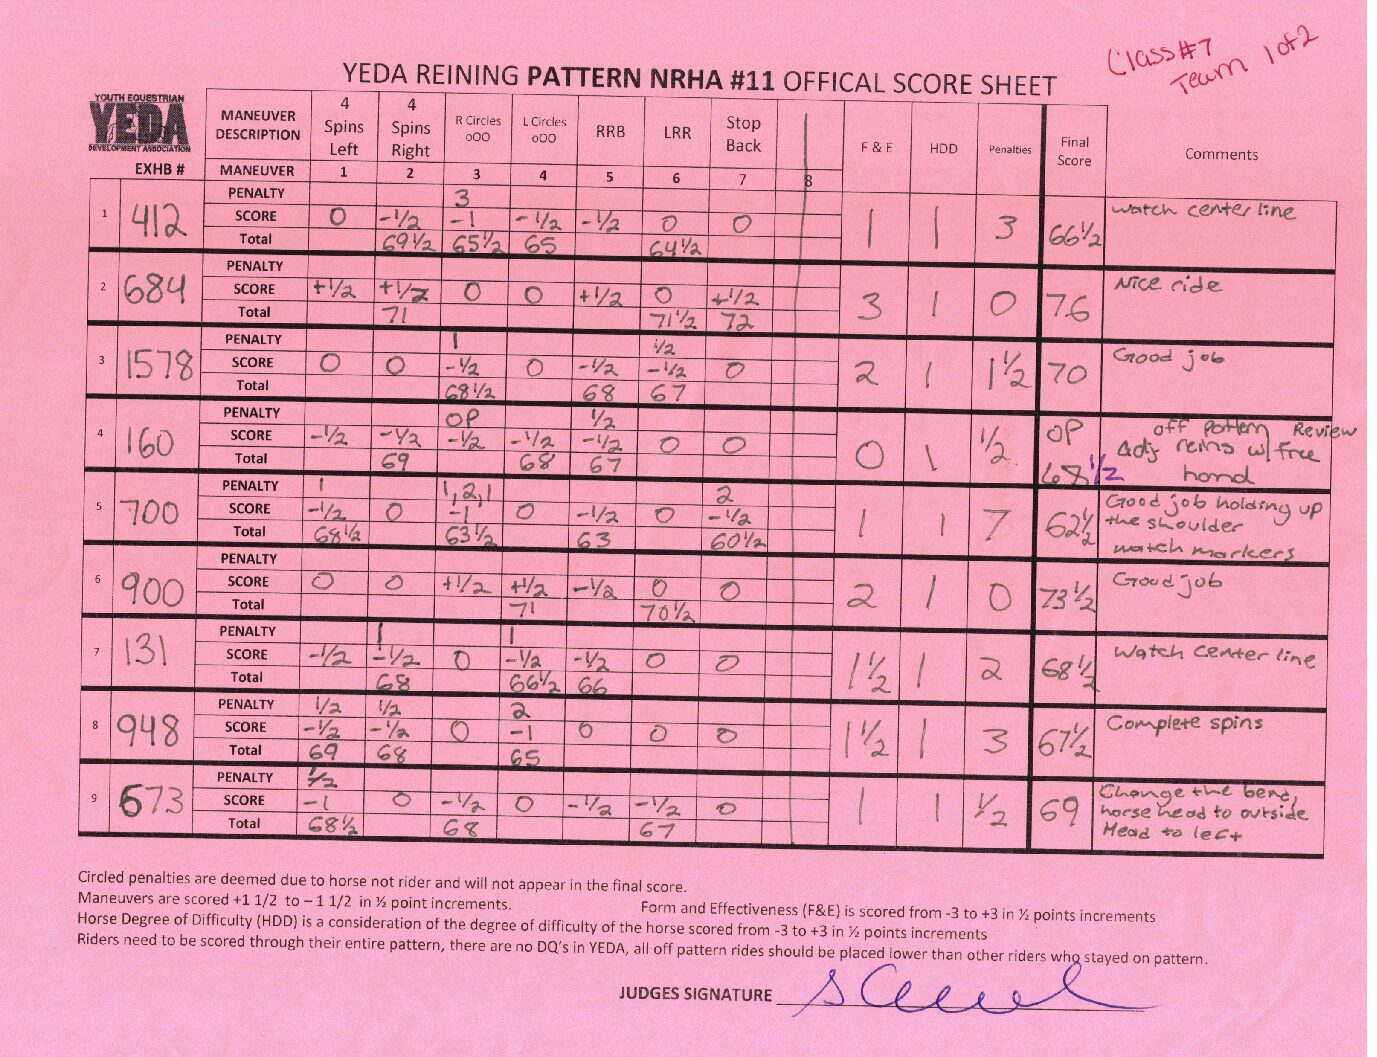 Class #7
Team 1 of 2
YEDA REINING PATTERN NRHA #11 OFFICAL SCORE SHEET
YOUTH EQUESTRIAN
YEDA
DEVELOPMENT ASSOCIATION
EXHB #
MANEUVER DESCRIPTION 4 Spins Left 4 Spins Right R Circles oOO L Circles oOO RRB LRR Stop Back F & E HDD Penalties Final Score Comments
MANEUVER 1 2 3 4 5 6 7 8
1 412 1 1 3 66½ Watch center line
PENALTY 3
SCORE 0 -½ -1 -½ -½ 0 0
Total 69½ 65½ 65 64½
2 684 3 1 0 76 Nice ride
PENALTY
SCORE +½ +½ 0 0 +½ 0 +½
Total 71 71½ 72
3 1578 2 1 1½ 70 Good job
PENALTY 1 ½
SCORE 0 0 -½ 0 -½ -½ 0
Total 68½ 68 67
4 160 0 1 ½ OP 68½ off pattern Review Adj reins w/ free hand
PENALTY OP ½
SCORE -½ -½ -½ -½ -½ 0 0
Total 69 68 67
5 700 1 1 7 62½ Good job holding up the shoulder watch markers
PENALTY 1 1,2,1 2
SCORE -½ 0 -1 0 -½ 0 -½
Total 68½ 63½ 63 60½
6 900 2 1 0 73½ Good job
PENALTY
SCORE 0 0 +½ +½ -½ 0 0
Total 71 70½
7 131 1½ 1 2 68½ Watch center line
PENALTY 1 1
SCORE -½ -½ 0 -½ -½ 0 0
Total 68 66½ 66
8 948 1½ 1 3 67½ Complete spins
PENALTY ½ ½ 2
SCORE -½ -½ 0 -1 0 0 0
Total 69 68 65
9 673 1 1 ½ 69 Change the bend, horse head to outside Head to left
PENALTY ½
SCORE -1 0 -½ 0 -½ -½ 0
Total 68½ 68 67
Circled penalties are deemed due to horse not rider and will not appear in the final score.
Maneuvers are scored +1 1/2 to – 1 1/2 in ½ point increments. Form and Effectiveness (F&E) is scored from -3 to +3 in ½ points increments
Horse Degree of Difficulty (HDD) is a consideration of the degree of difficulty of the horse scored from -3 to +3 in ½ points increments
Riders need to be scored through their entire pattern, there are no DQ's in YEDA, all off pattern rides should be placed lower than other riders who stayed on pattern.
JUDGES SIGNATURE